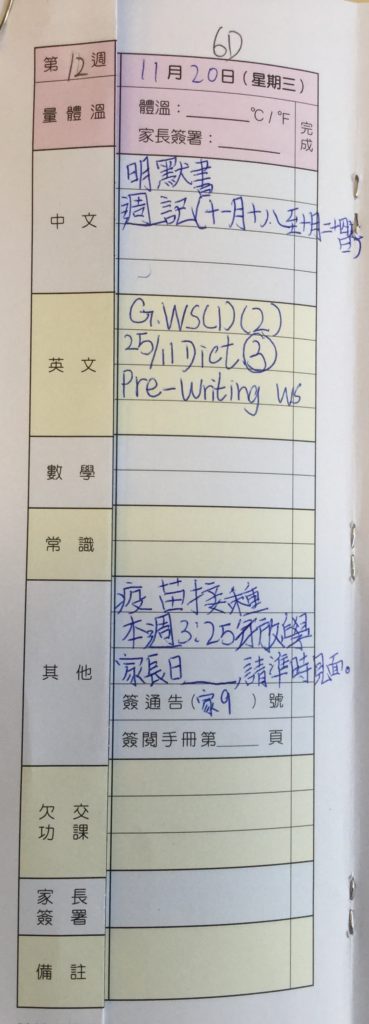 6D
第12週 11月20日(星期三)
量體溫 體溫:______°C/°F 完成
家長簽署:______
中文 明默書
週記(十一月十八至十月二十四日)
英文 G.WS(1)(2)
25/11 Dict ③
Pre-writing ws
數學
常識
其他 疫苗接種
本週3:25放學
家長日____,請準時見面。
簽通告(家9)號
簽閱手冊第____頁
欠交功課
家長簽署
備註